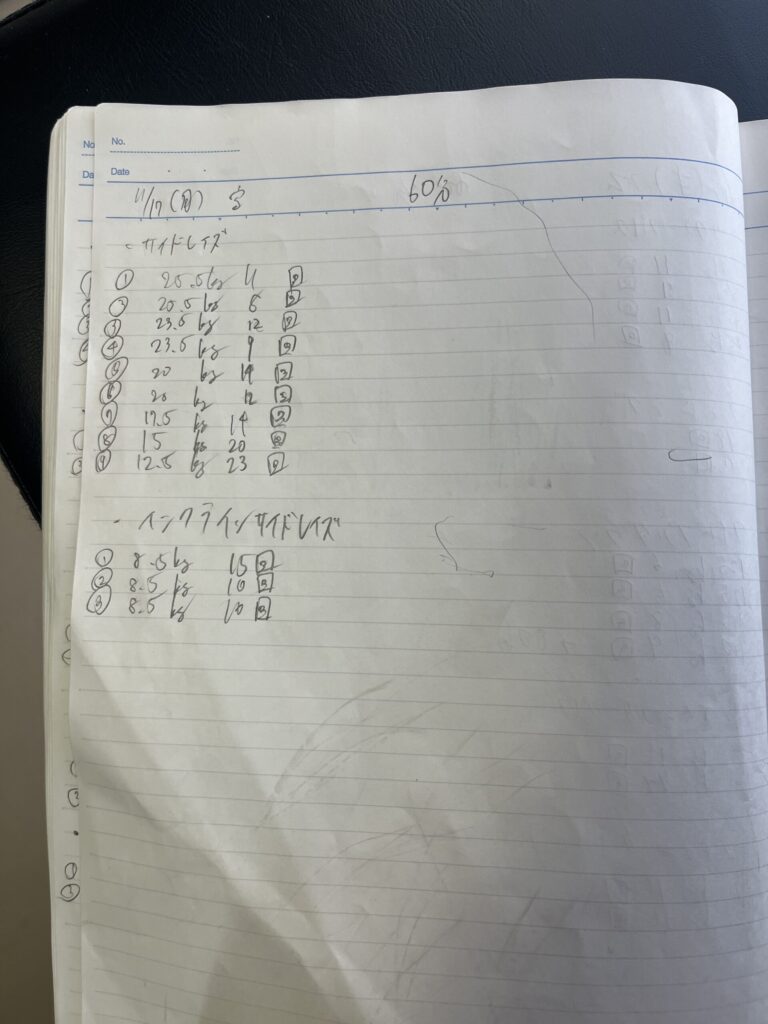 No.
Date
11/17 (月) 60分
・サイドレイズ
① 25.5kg 4 2
② 20.5kg 6 2
③ 23.5kg 12 2
④ 23.5kg 9 2
⑤ 20 kg 14 2
⑥ 20 kg 12 2
⑦ 17.5 kg 14 2
⑧ 15 kg 20 2
⑨ 12.5 kg 23 2
・インクラインサイドレイズ
① 8.5kg 15 2
② 8.5 kg 10 2
③ 8.5 kg 10 2